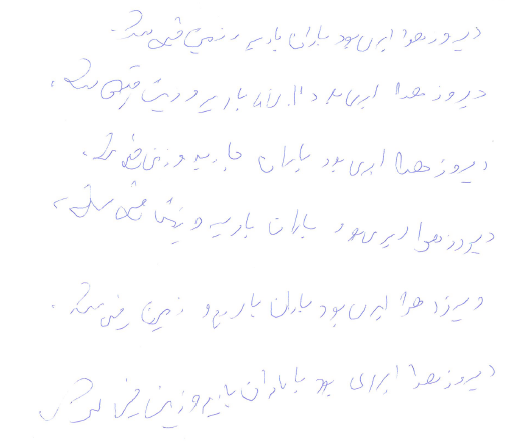 دیروز هوا ابری بود باران بارید و زمین خیس شد.
دیروز هوا ابری بود باران بارید و زمین خیس شد.
دیروز هوا ابری بود باران بارید و زمین خیس شد.
دیروز هوا ابری بود باران بارید و زمین خیس شد.
دیروز هوا ابری بود باران بارید و زمین خیس شد.
دیروز هوا ابری بود باران بارید و زمین خیس شد